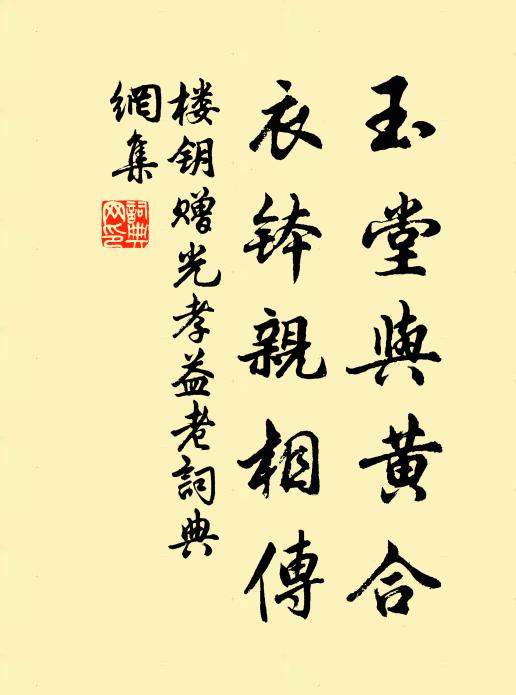 玉堂與黄合
衣鉢親相傳
楼钥赠光孝益老詞典
網集
詞典
网印